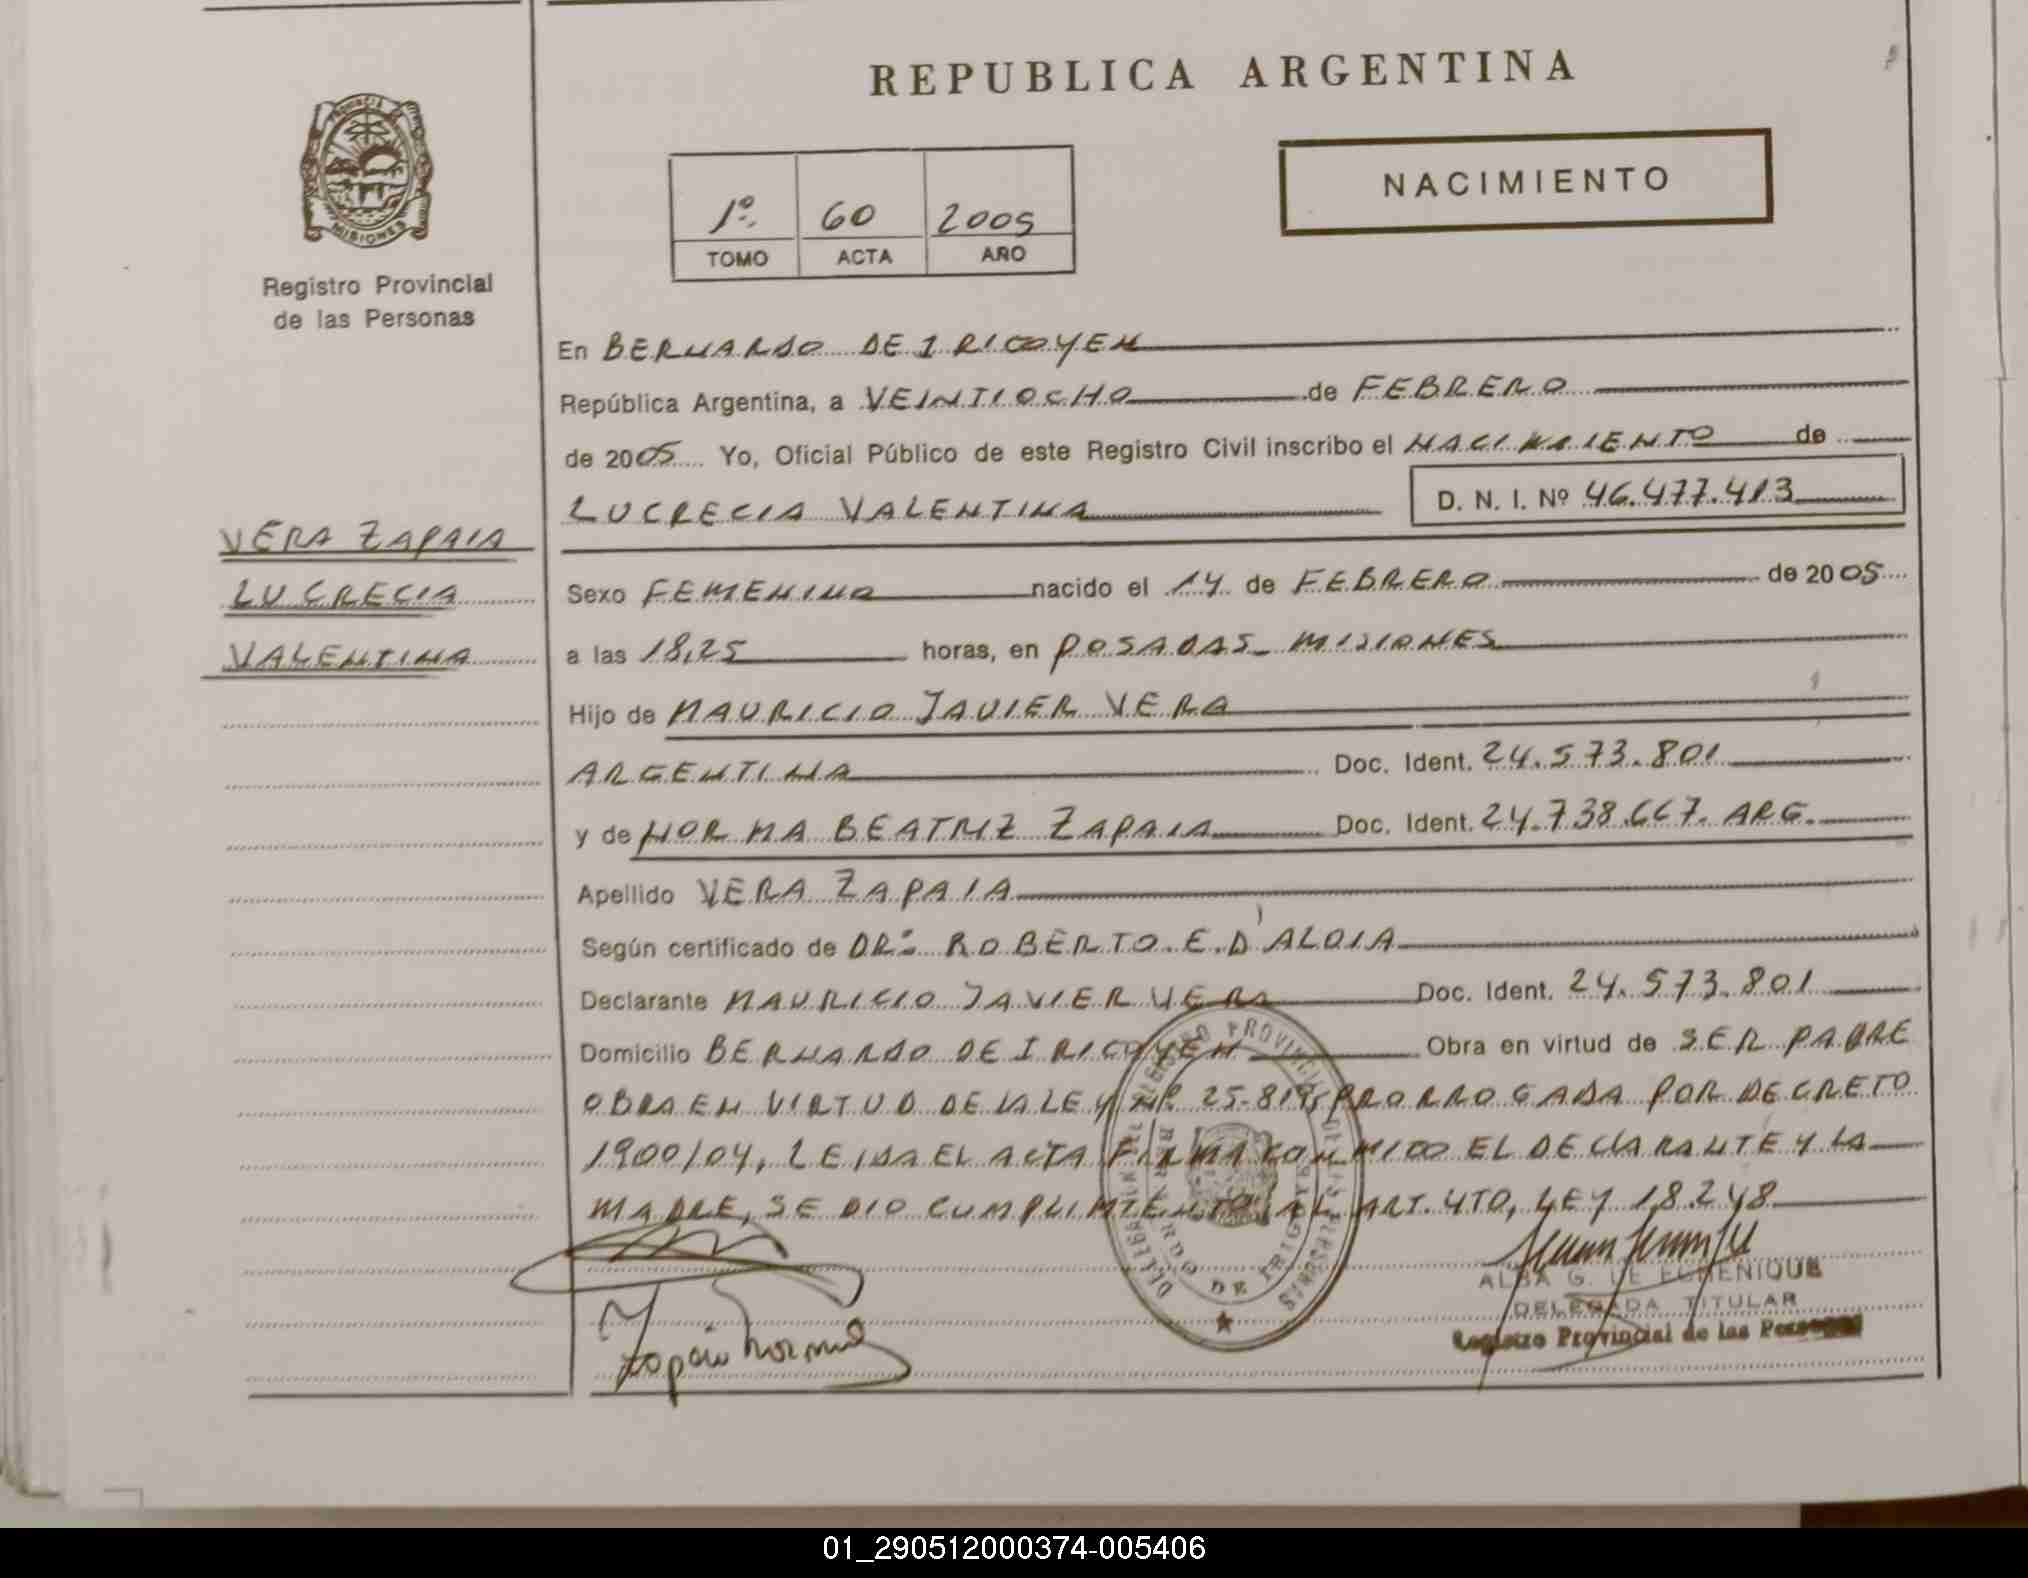 REPUBLICA ARGENTINA
NACIMIENTO
1º 60 2005
TOMO ACTA AÑO
PROVINCIA
MISIONES
Registro Provincial
de las Personas
VERA ZAPAIA
LUCRECIA
VALENTINA
En BERNARDO DE IRIGOYEN
República Argentina, a VEINTIOCHO de FEBRERO
de 2005 Yo, Oficial Público de este Registro Civil inscribo el NACIMIENTO de
LUCRECIA VALENTINA D. N. I. Nº 46.477.413
Sexo FEMENINO nacido el 14 de FEBRERO de 2005
a las 18,25 horas, en POSADAS - MISIONES
Hijo de MAURICIO JAVIER VERA
ARGENTINA Doc. Ident. 24.573.801
y de NORMA BEATRIZ ZAPAIA Doc. Ident. 24.738.667. ARG.
Apellido VERA ZAPAIA
Según certificado de DR: ROBERTO. E. D'ALOIA
Declarante MAURICIO JAVIER VERA Doc. Ident. 24.573.801
Domicilio BERNARDO DE IRIGOYEN Obra en virtud de SER PADRE
OBRA EN VIRTUD DE LA LEY Nº 25.819, PRORROGADA POR DECRETO
1900/04, LEIDA EL ACTA FIRMA CONMIGO EL DECLARANTE Y LA
MADRE, SE DIO CUMPLIMIENTO AL ART. 4TO, LEY 18.248
DELEGACION DEL REGISTRO PROVINCIAL DE LAS PERSONAS
BERNARDO DE IRIGOYEN
Zapaia Norma
ALBA G. DE ECHENIQUE
DELEGADA TITULAR
Registro Provincial de las Personas
01_290512000374-005406